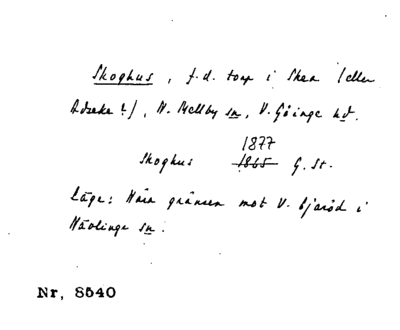 Skoghus, f.d. torp i Skea (eller
Adseke?), N. Mellby sn, V. Göinge hd.
1877
Skoghus 1865 G. St.
Läge: Nära gränsen mot V. Bjaröd i
Hävlinge sn.
Nr, 8540